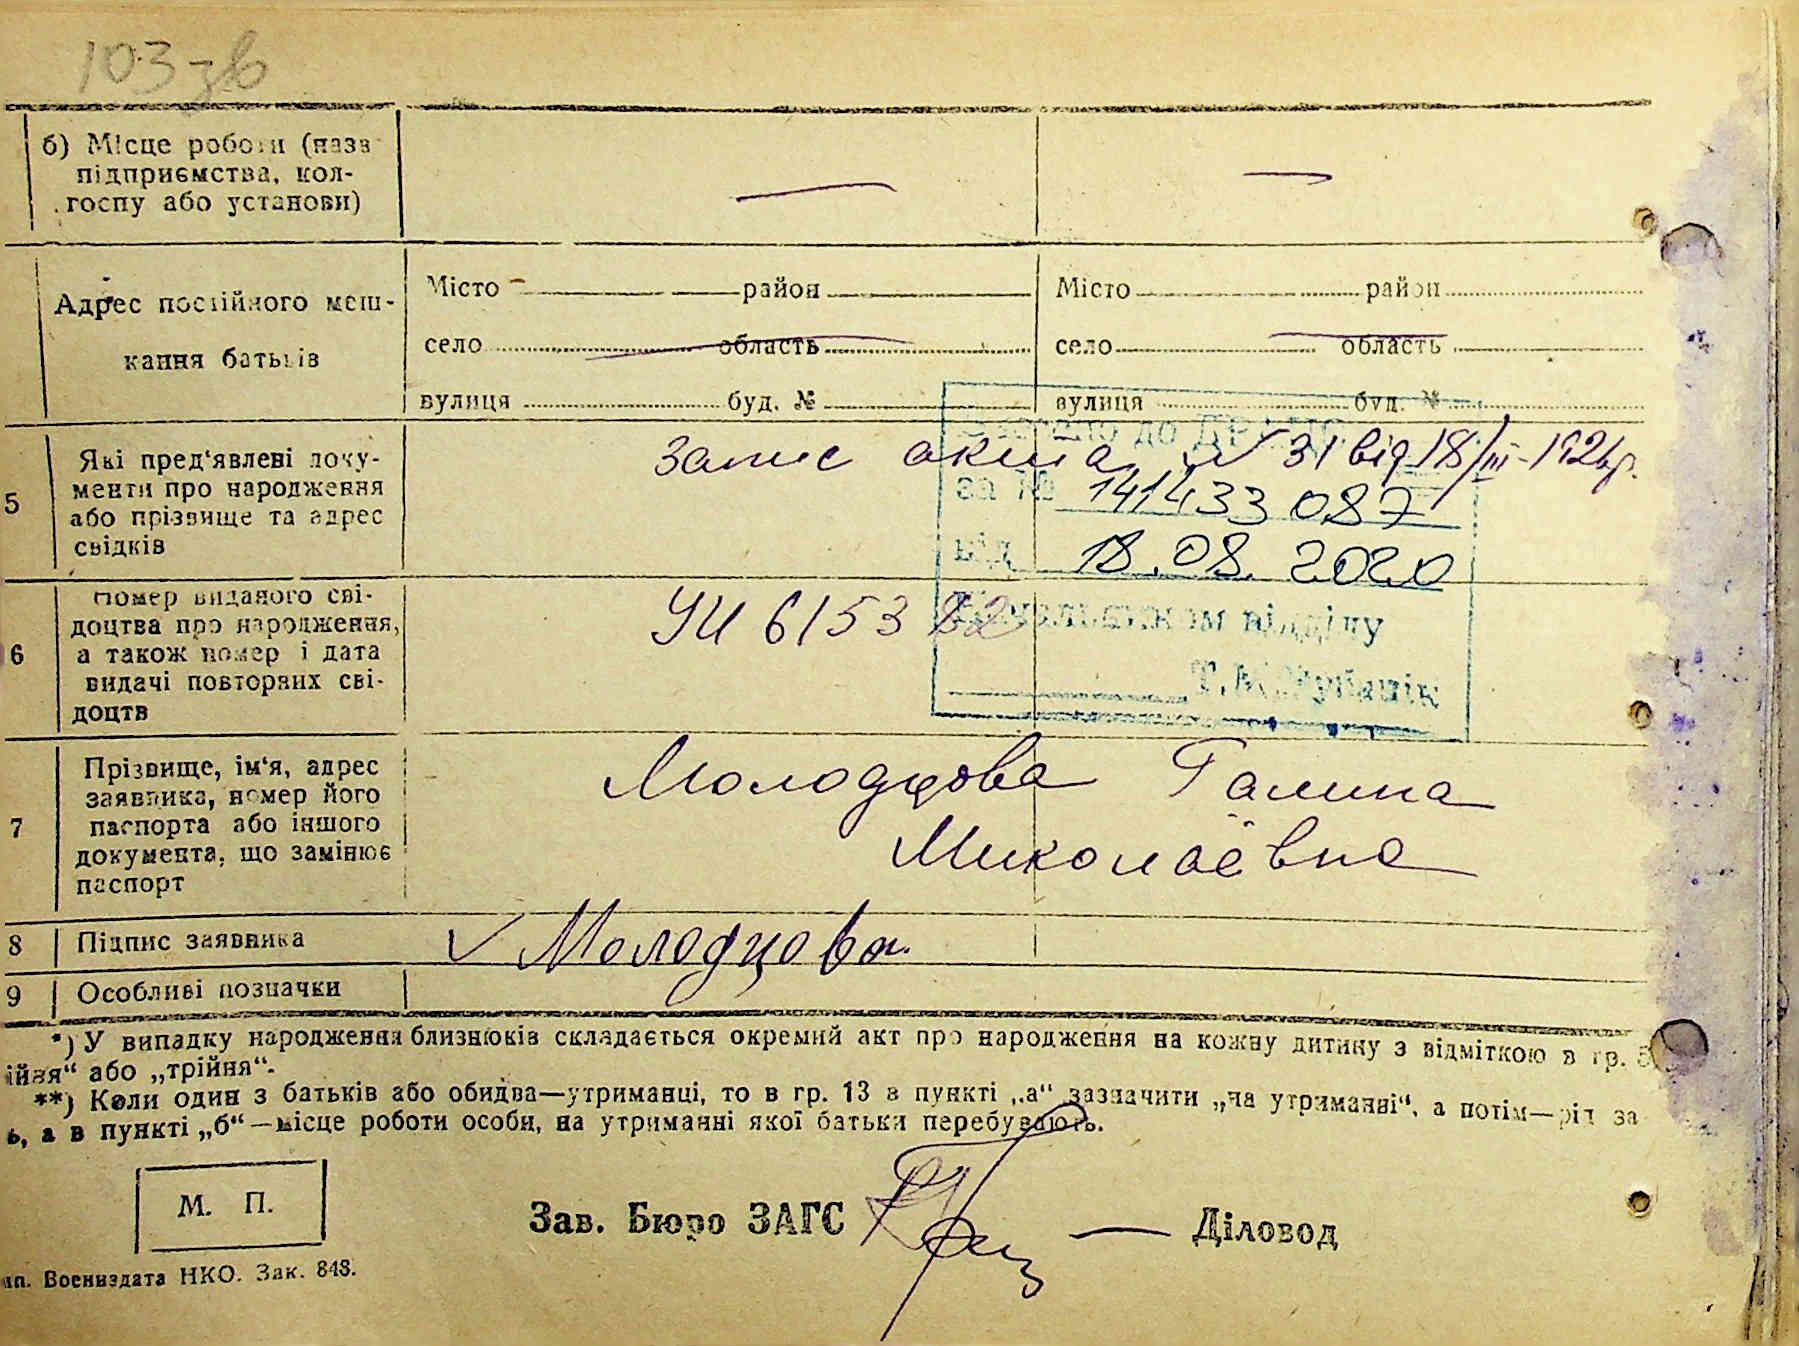 103 зв
б) Місце роботи (назв
підприємства, кол-
госпу або установи)
Адрес постійного меш-
кання батьків
Місто район
село область
вулиця буд. №
Місто район
село область
вулиця буд. №
5
Які пред‘явлені доку-
менти про народження
або прізвище та адрес
свідків
запис акта № 31 від 18/III-
до ДРАЦС
за № 141433087
від 18.08.2020
Начальником відділу
6
Номер виданого сві-
доцтва про народження,
а також номер і дата
видачі повторних сві-
доцтв
УИ 615382
7
Прізвище, ім‘я, адрес
заявника, номер його
паспорта або іншого
документа, що замінює
паспорт
Молодцова Галина
Миколаевна
8 Підпис заявника
Молодцова
9 Особливі позначки
*) У випадку народження близнюків складається окремий акт про народження на кожну дитину з відміткою в гр. 5
ійня“ або „трійня“.
**) Коли один з батьків або обидва—утриманці, то в гр. 13 в пункті „а“ зазначити „на утриманні“, а потім—рід за
ь, а в пункті „б“—місце роботи особи, на утриманні якої батьки перебувають.
М. П.
Зав. Бюро ЗАГС
Діловод
ип. Воениздата НКО. Зак. 848.